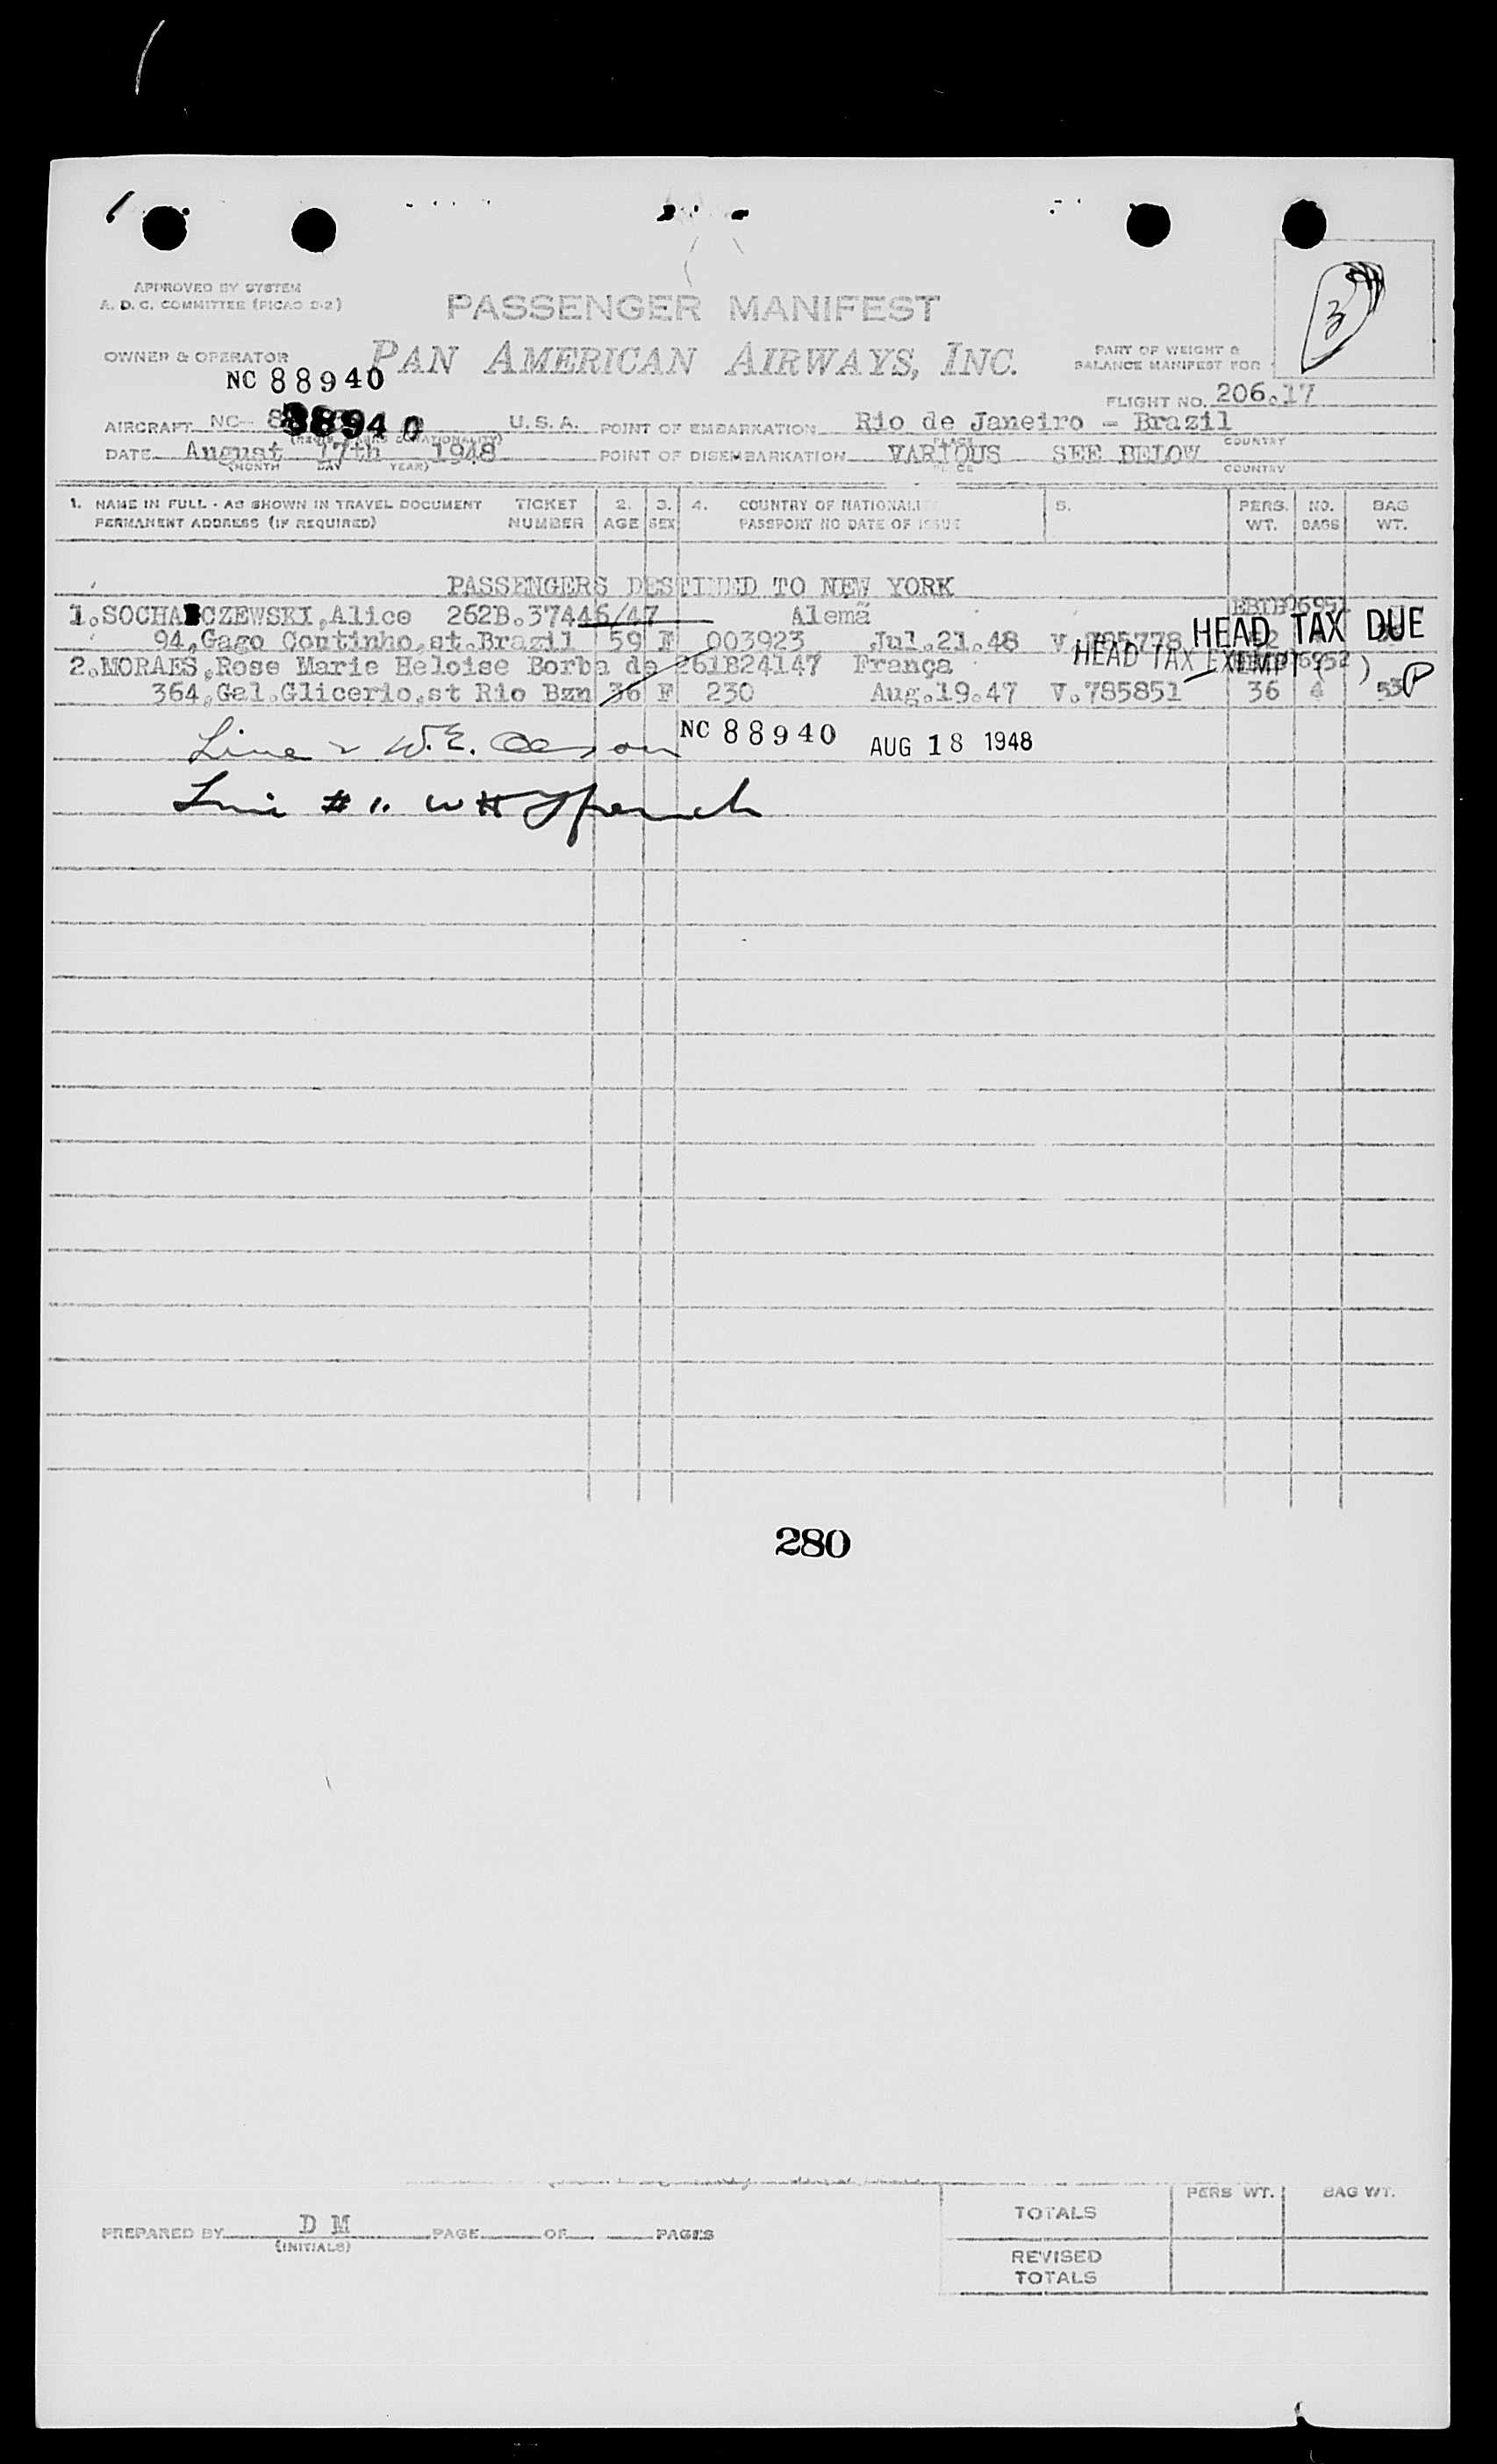 APPROVED BY SYSTEM
A. D. C. COMMITTEE (PICAO D-2)
PASSENGER MANIFEST
3
OWNER & OPERATOR
PAN AMERICAN AIRWAYS, INC.
PART OF WEIGHT &
BALANCE MANIFEST FOR
NC 88940
FLIGHT NO. 206.17
AIRCRAFT NC- 88940 U.S.A. POINT OF EMBARKATION Rio de Janeiro - Brazil
PLACE COUNTRY
DATE August 17th 1948 POINT OF DISEMBARKATION VARIOUS SEE BELOW
(MONTH DAY YEAR) COUNTRY
1. NAME IN FULL - AS SHOWN IN TRAVEL DOCUMENT TICKET 2. 3. 4. COUNTRY OF NATIONALI 5. PERS. NO. BAG
PERMANENT ADDRESS (IF REQUIRED) NUMBER AGE SEX PASSPORT NO DATE OF ISSUE WT. BAGS WT.
PASSENGERS DESTINED TO NEW YORK
1.SOCHA CZEWSKI,Alice 262B.37446/47 Alemã
HEAD TAX DUE
94,Gago Coutinho,st.Brazil 59 F 003923 Jul.21.48 V.785778
HEAD TAX EXEMPT ( )
2.MORAES,Rose Marie Heloise Borba de 261B24147 França
364,Gal.Glicerio,st Rio Bzn 36 F 230 Aug.19.47 V.785851 36 4 53
Line 2 W.E.
NC 88940 AUG 18 1948
Line # 1. W H
280
TOTALS PERS WT. BAG WT.
PREPARED BY D M PAGE OF PAGES
(INITIALS)
REVISED
TOTALS